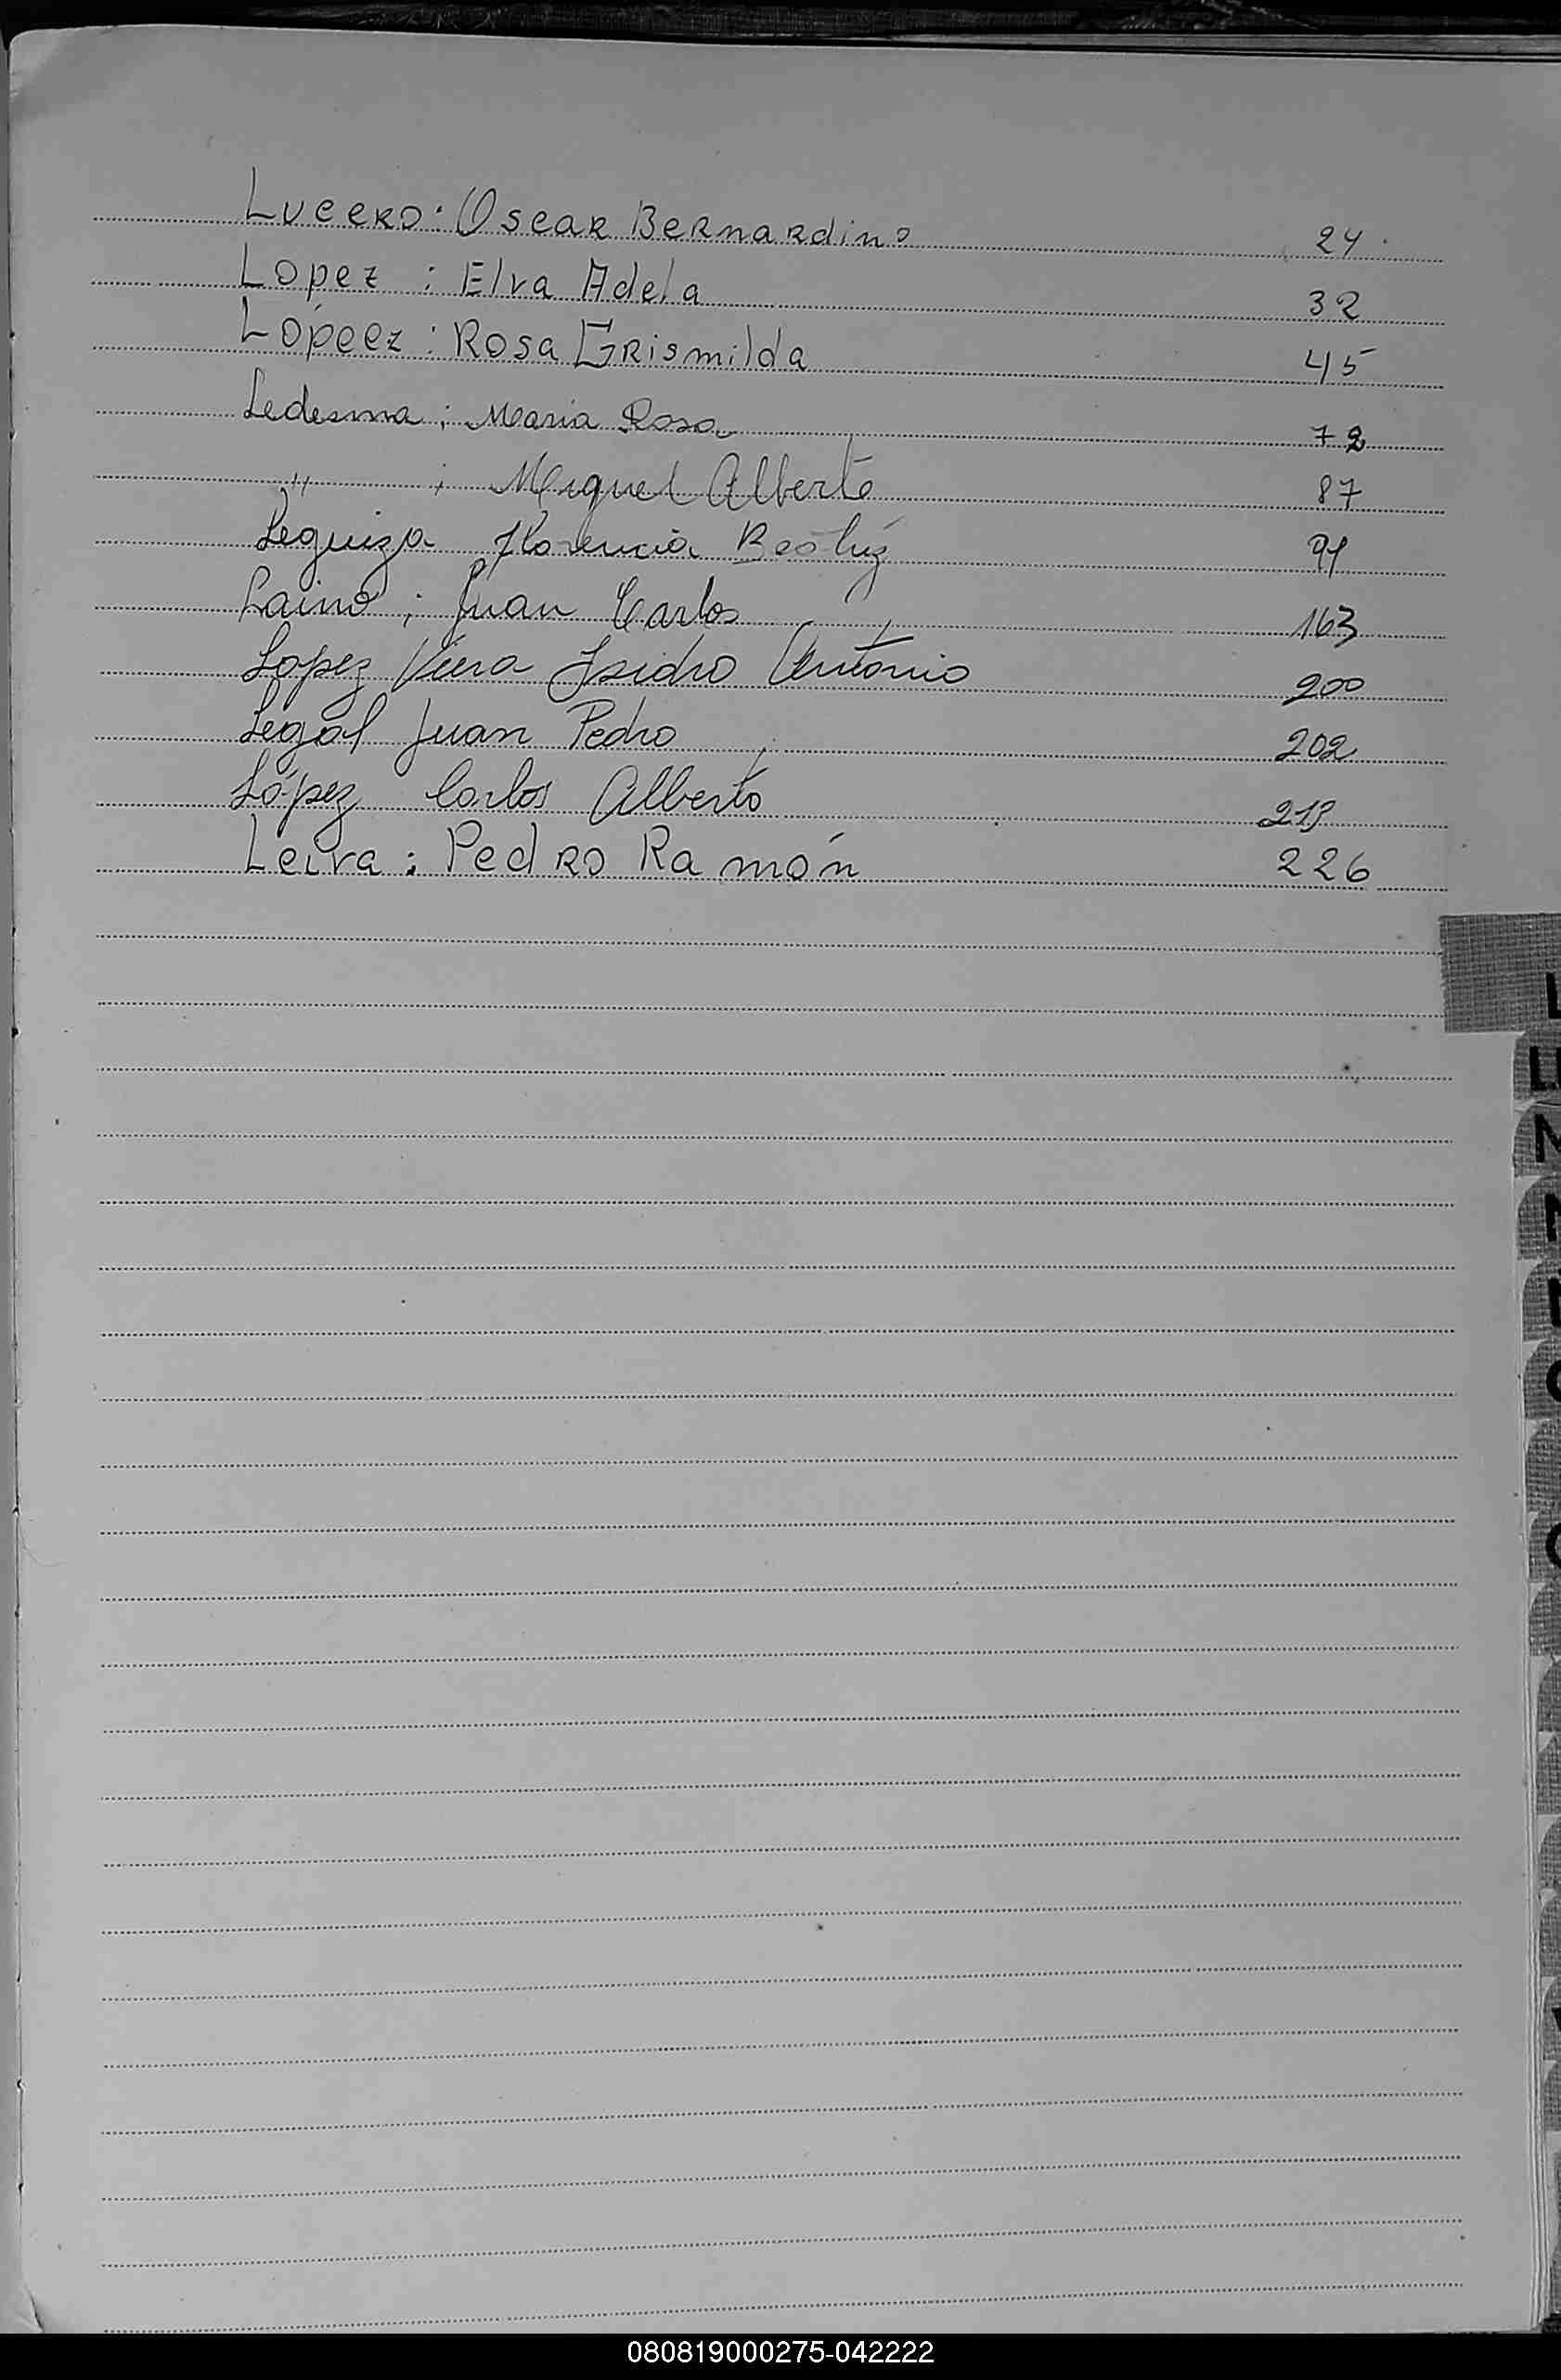 Lucero: Oscar Bernardino 24
Lopez : Elva Adela 32
Lópeez : Rosa Grismilda 45
Ledesma ; Maria Rosa 72
" ; Miguel Alberto 87
Leguiza Florencia Beatríz 91
Laino ; Juan Carlos 163
Lopez Viera Isidro Antonio 200
Legal Juan Pedro 202
López Carlos Alberto 219
Leiva : Pedro Ramón 226
L
LL
N
080819000275-042222